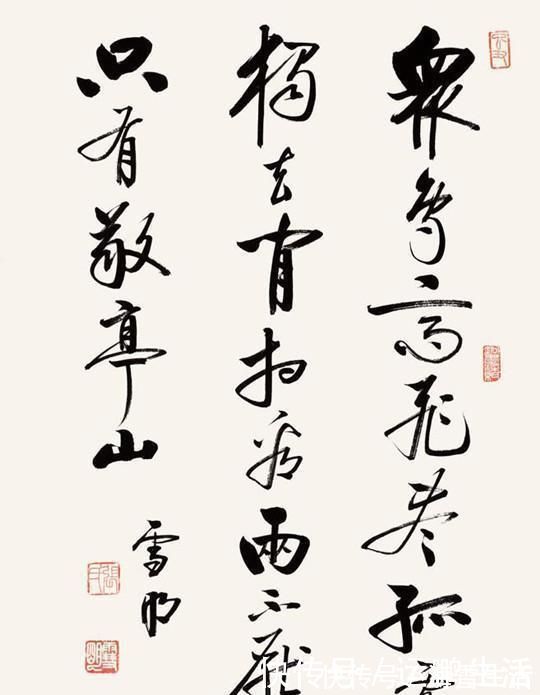 眾鳥高飛盡孤
獨去閒相看兩不厭
只有敬亭山
雪明